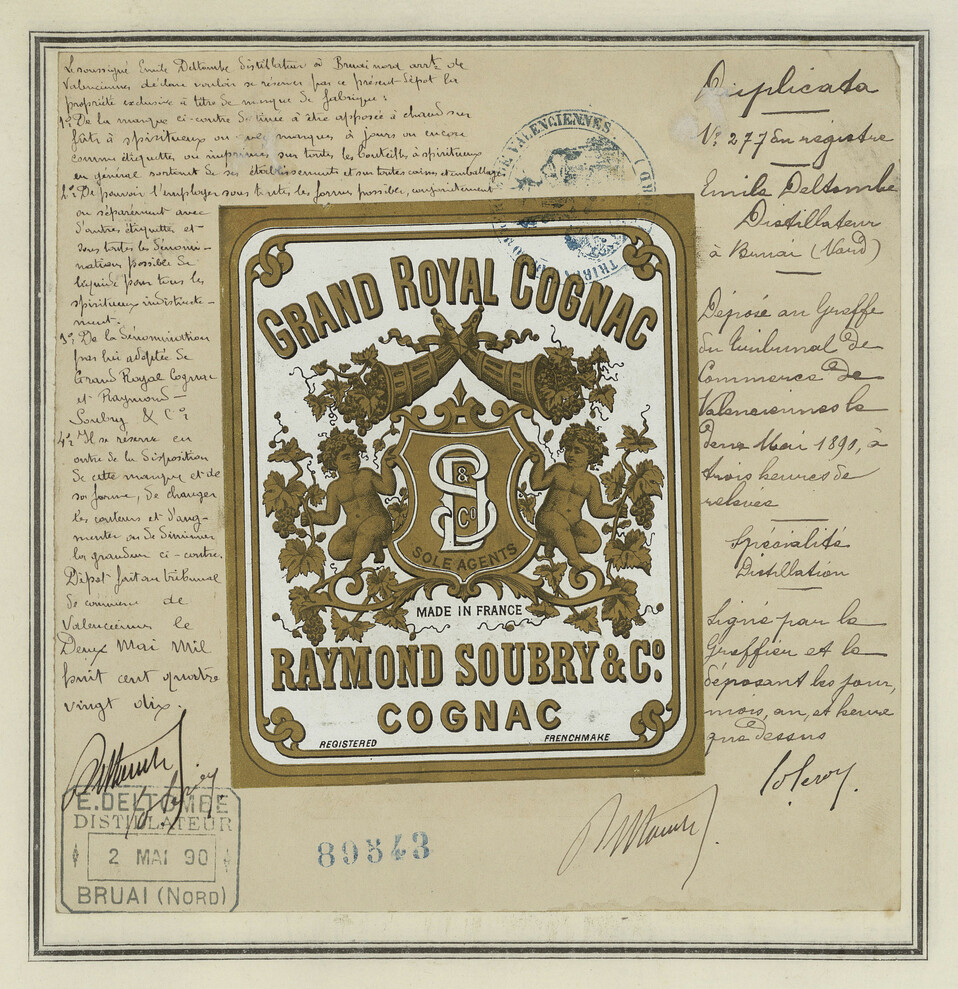 Le soussigné Emile Deltombe Distillateur à Bruai nord arrt de
Valenciennes déclare vouloir se réserver par ce présent Dépot la
propriété exclusive à titre de marque de fabrique :
1o De la marque ci-contre destinée à être apposée à chaud sur
fûts à spiritueux ou avec marques à jours ou encore
comme étiquettes ou imprimés sur toutes les bouteilles à spiritueux
en général sortant de ses établissements et sur toutes caisses et emballages
2o De pouvoir l'employer sous toutes les formes possibles, conjointement
ou séparément avec
d'autres étiquettes et
sous toutes les dénomi-
nations possible de
liquide pour tous les
spiritueux indistincte-
ment.
3o De la dénomination
par lui adoptée de
Grand Royal Cognac
et Raymond-
Soubry & Co
4o Il se réserve en
outre de la disposition
de cette marque et de
sa forme, de changer
les couleurs et d'aug-
menter ou de diminuer
la grandeur ci-contre.
Dépot fait au tribunal
de commerce de
Valenciennes le
Deux Mai Mil
huit cent quatre
vingt dix.
E. DELTOMBE
DISTILLATEUR
2 MAI 90
BRUAI (NORD)
VALENCIENNES
GRAND ROYAL COGNAC
S & B Co
SOLE AGENTS
MADE IN FRANCE
RAYMOND SOUBRY & Co.
COGNAC
REGISTERED
FRENCHMAKE
89543
Duplicata
No 277 du régistre
Emile Deltombe
Distillateur
à Bruai (Nord)
Déposé au Greffe
du tribunal de
Commerce de
Valenciennes le
deux Mai 1890, à
trois heures de
relevée
Spécialité
Distillation
Signé par le
Greffier et le
déposant les jour,
mois, an, et heure
que dessus